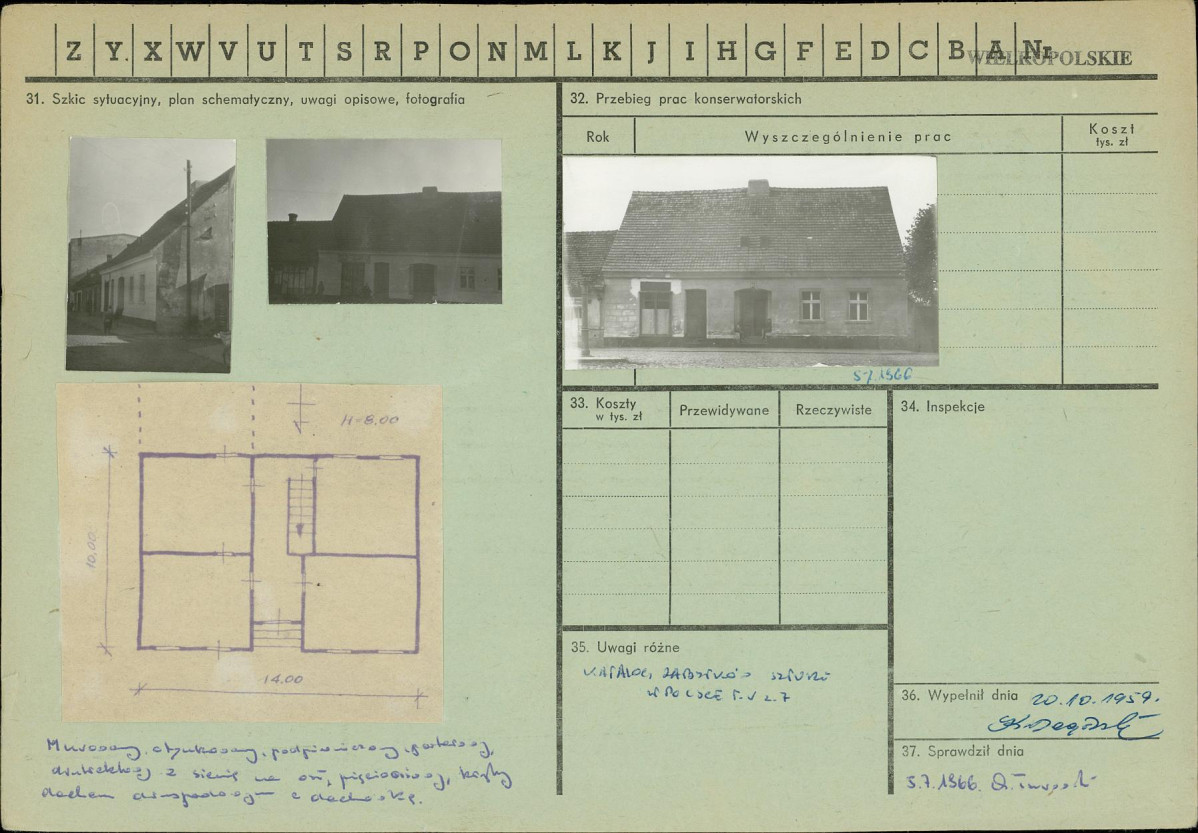 Z Y. X W V U T S R P O N M L K J I H G F E D C B A Nr
WIELKOPOLSKIE
31. Szkic sytuacyjny, plan schematyczny, uwagi opisowe, fotografia
32. Przebieg prac konserwatorskich
Rok
Wyszczególnienie prac
Koszt
tys. zł
5.7.1966
H=8.00
10.00
14.00
Murowany, otynkowany, podpiwniczony, parterowy,
dwutraktowy z sienią na osi, pięcioosiowy, kryty
dachem dwuspadowym z dachówką.
33. Koszty
w tys. zł
Przewidywane
Rzeczywiste
34. Inspekcje
35. Uwagi różne
KATALOG ZABYTKÓW SZTUKI
W POLSCE T. V z. 7
36. Wypełnił dnia 20.10.1959.
37. Sprawdził dnia
5.7.1966.